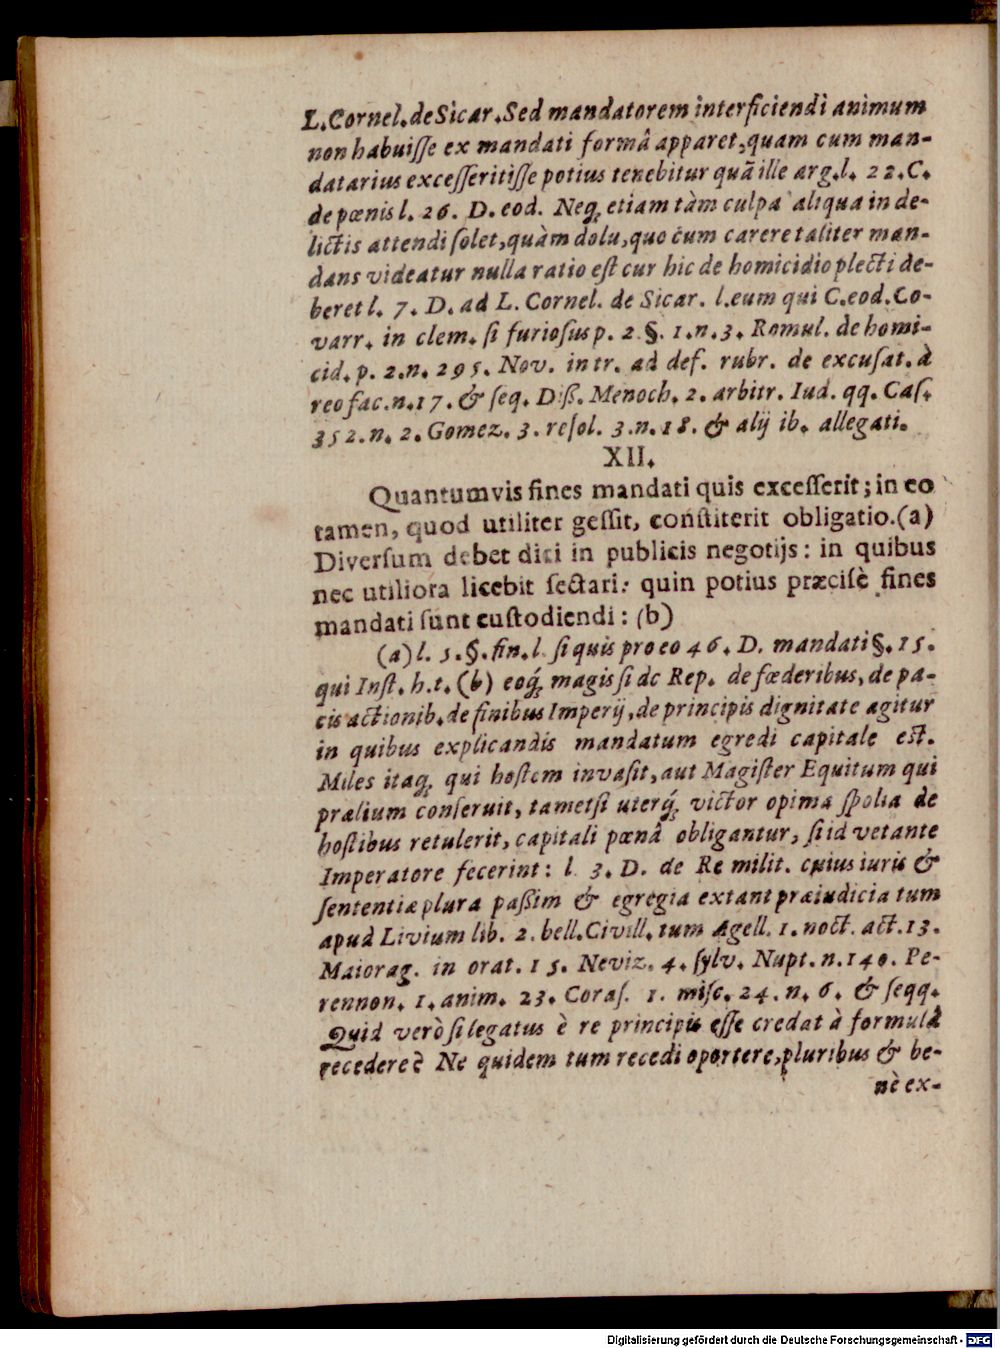 L. Cornel. de Sicar. Sed mandatorem interficiendi animum
non habuiſſe ex mandati formâ apparet, quam cum man-
datarius exceſſerit iſſe potius tenebitur quã ille arg. l. 22. C.
de pœnis l. 26. D. eod. Neq; etiam tàm culpa aliqua in de-
lictis attendi ſolet, quàm dolu, quo cum carere taliter man-
dans videatur nulla ratio eſt cur hic de homicidio plecti de-
beret l. 7. D. ad L. Cornel. de Sicar. l. eum qui C. eod. Co-
varr. in clem. ſi furioſus p. 2. §. 1. n. 3. Romul. de homi-
cid. p. 2. n. 295. Nov. in tr. ad def. rubr. de excuſat. à
reo fac. n. 17. & ſeq. Diß. Menoch. 2. arbitr. Iud. qq. Caſ.
352. n. 2. Gomez. 3. reſol. 3. n. 18. & alij ib. allegati.
XII.
Quantumvis fines mandati quis exceſſerit; in eo
tamen, quod utiliter geſſit, conſtiterit obligatio. (a)
Diverſum debet dici in publicis negotijs: in quibus
nec utiliora licebit ſectari: quin potius præciſè fines
mandati ſunt cuſtodiendi: (b)
(a) l. 5. §. fin. l. ſi quis pro eo 46. D. mandati §. 15.
qui Inſt. h. t. (b) eoq́; magis ſi de Rep. de fœderibus, de pa-
cis actionib. de finibus Imperij, de principis dignitate agitur
in quibus explicandis mandatum egredi capitale eſt.
Miles itaq; qui hoſtem invaſit, aut Magiſter Equitum qui
prælium conſeruit, tametſi uterq́; victor opima ſpolia de
hoſtibus retulerit, capitali pœnâ obligantur, ſi id vetante
Imperatore fecerint: l. 3. D. de Re milit. cuius iuris &
ſententiæ plura paßim & egregia extant præiudicia tum
apud Livium lib. 2. bell. Civill. tum Agell. 1. noct. act. 13.
Maiorag. in orat. 15. Neviz. 4. ſylv. Nupt. n. 140. Pe-
rennon. 1. anim. 23. Coraſ. 1. miſc. 24. n. 6. & ſeqq.
Quid verò ſi legatus è re principis eſſe credat à formulâ
recedere? Ne quidem tum recedi oportere, pluribus & be-
nè ex-
Digitalisierung gefördert durch die Deutsche Forschungsgemeinschaft - DFG